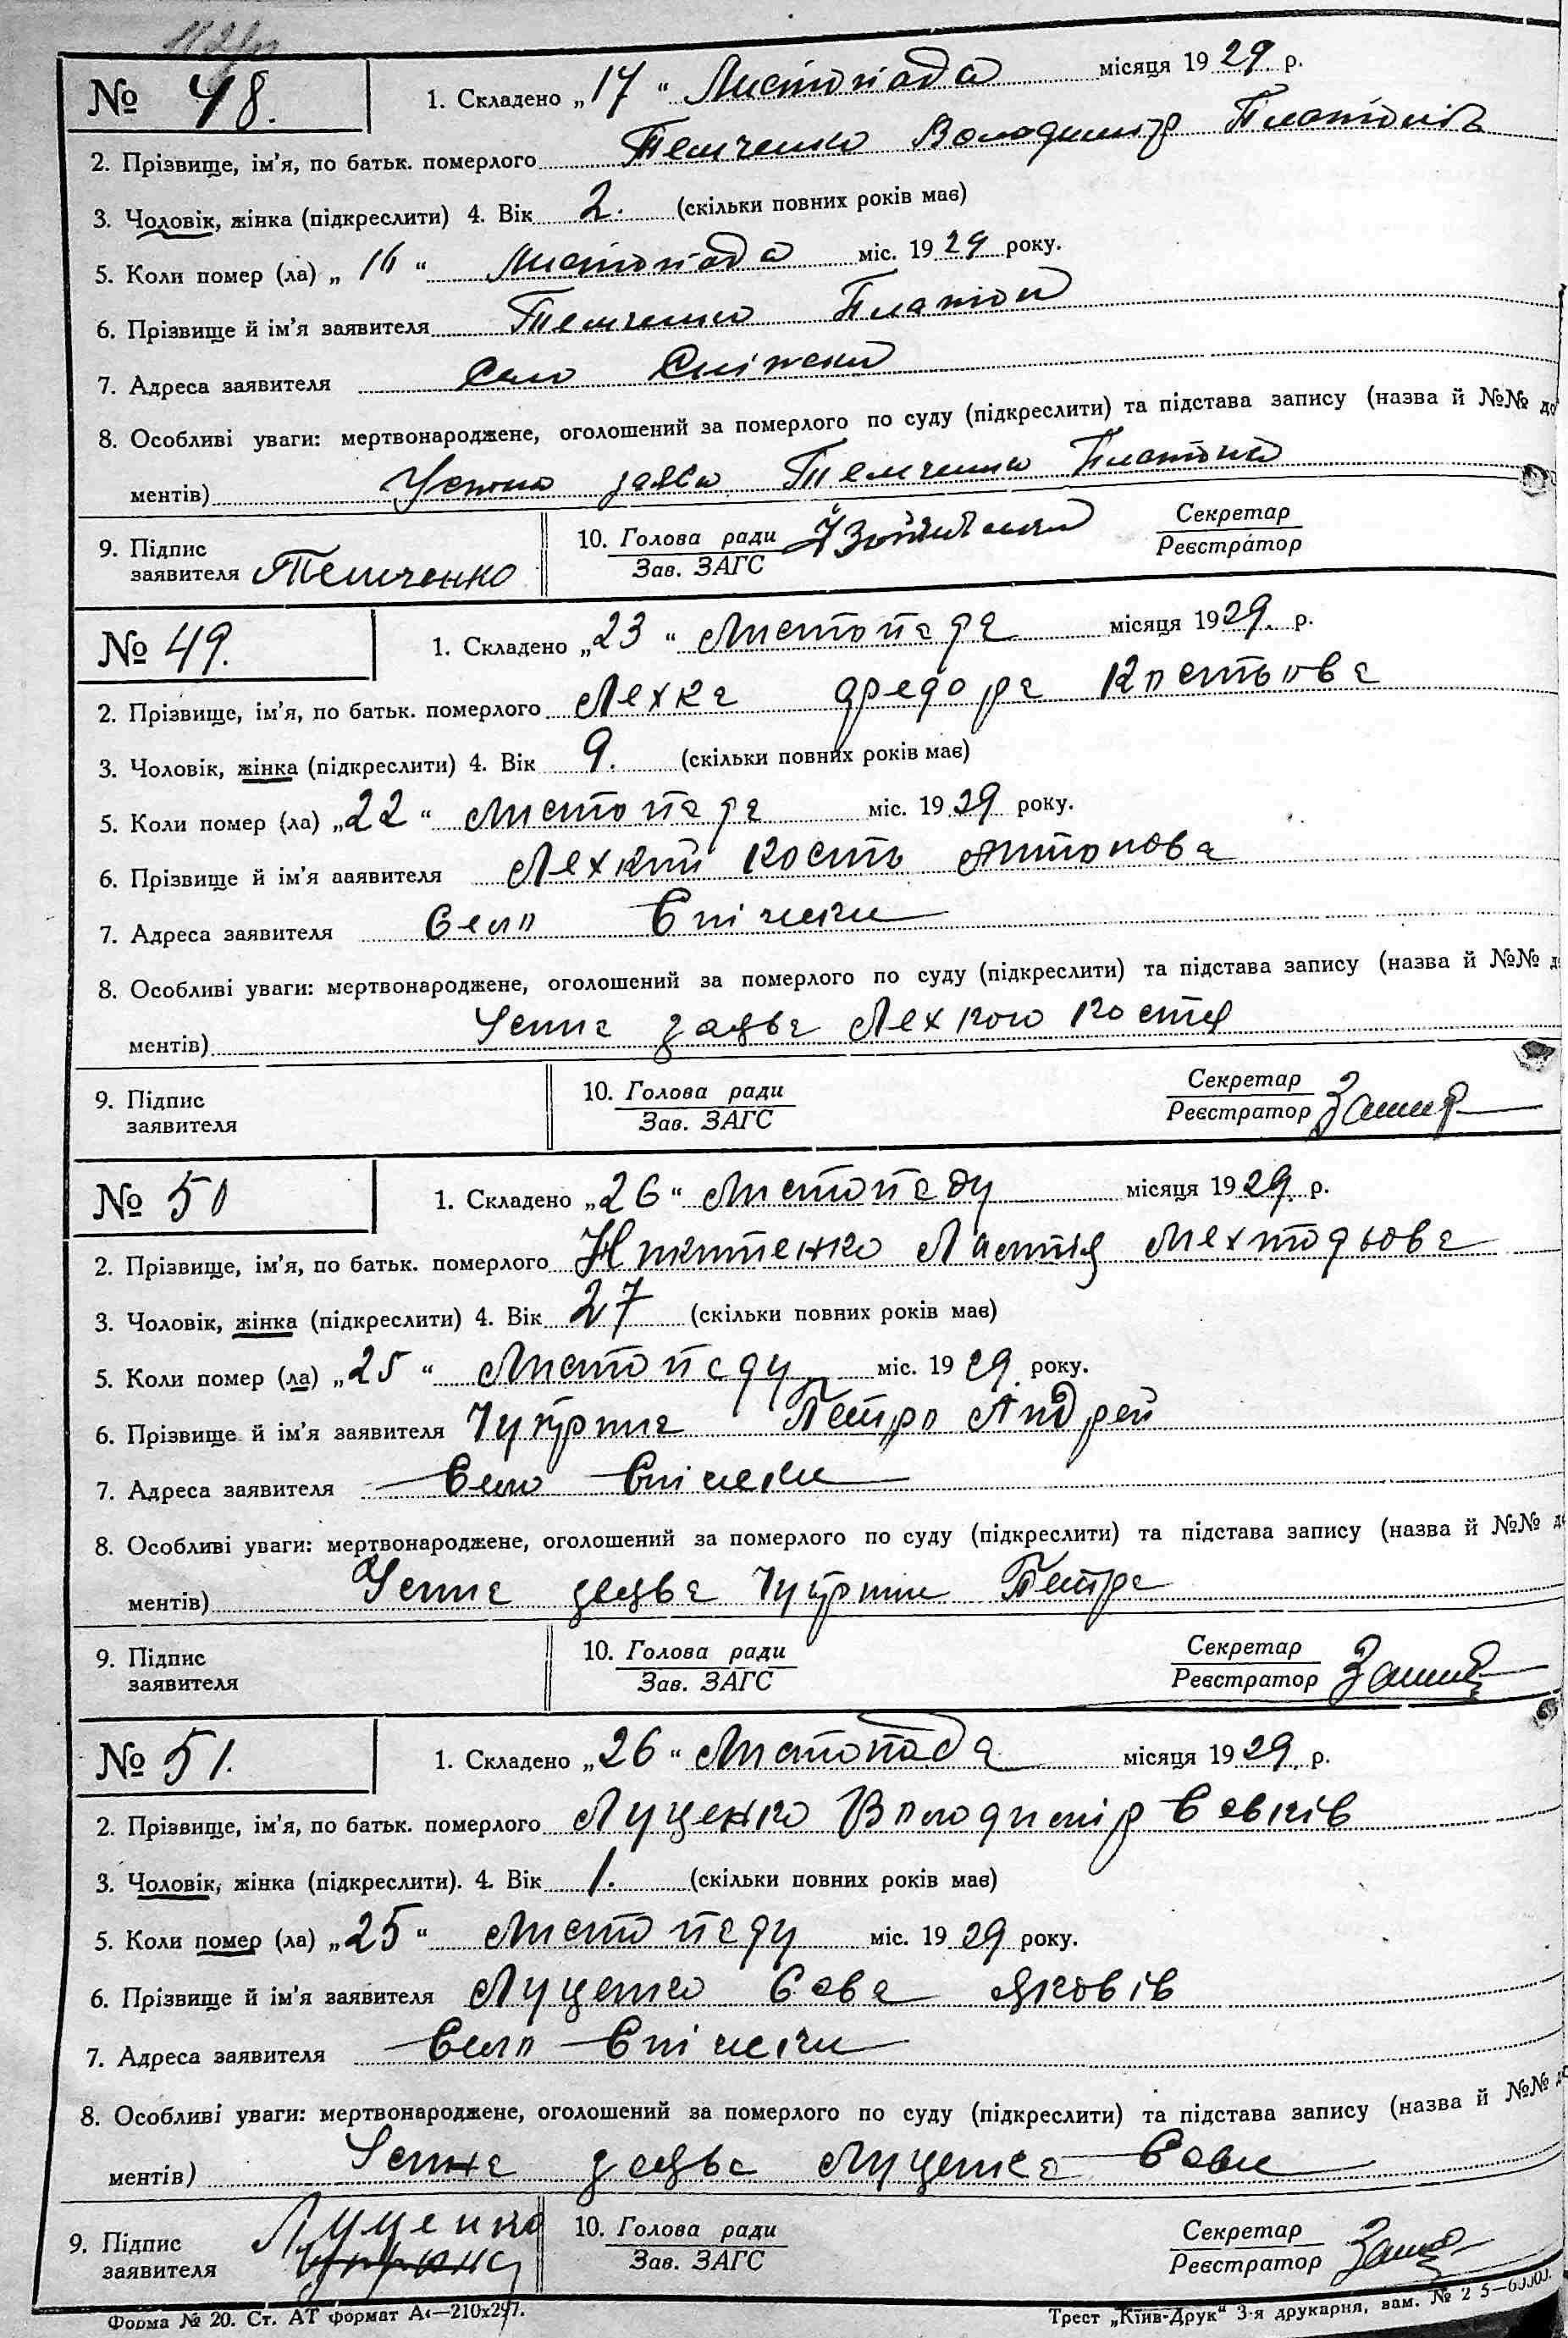 № 48. 1. Складено „17“ Листопада місяця 1929 р.
2. Прізвище, ім’я, по батьк. померлого Темченко Володимір Платонів
3. Чоловік, жінка (підкреслити) 4. Вік 2. (скільки повних років має)
5. Коли помер (ла) „16“ Листопада міс. 1929 року.
6. Прізвище й ім’я заявителя Темченко Платон
7. Адреса заявителя Село Спічки
8. Особливі уваги: мертвонароджене, оголошений за померлого по суду (підкреслити) та підстава запису (назва й №№ до
ментів) Устна заява Темченка Платона
9. Підпис заявителя Темченко 10. Голова ради Зав. ЗАГС Секретар Реєстратор
№ 49. 1. Складено „23“ Листопада місяця 1929. р.
2. Прізвище, ім’я, по батьк. померлого Лехка Федора Костьова
3. Чоловік, жінка (підкреслити) 4. Вік 9. (скільки повних років має)
5. Коли помер (ла) „22“ Листопада міс. 1929 року.
6. Прізвище й ім’я заявителя Лехкий Кость Антонова
7. Адреса заявителя Село Спічки
8. Особливі уваги: мертвонароджене, оголошений за померлого по суду (підкреслити) та підстава запису (назва й №№ д
ментів) Устна заява Лехкого Костя
9. Підпис заявителя 10. Голова ради Зав. ЗАГС Секретар Реєстратор
№ 50 1. Складено „26“ Листопаду місяця 1929. р.
2. Прізвище, ім’я, по батьк. померлого Никитенко Мехтодьова
3. Чоловік, жінка (підкреслити) 4. Вік 27 (скільки повних років має)
5. Коли помер (ла) „25“ Листопаду міс. 1929 року.
6. Прізвище й ім’я заявителя Чуприна Петро Андрей
7. Адреса заявителя Село Спічки
8. Особливі уваги: мертвонароджене, оголошений за померлого по суду (підкреслити) та підстава запису (назва й №№ до
ментів) Устна заява Чуприни Петра
9. Підпис заявителя 10. Голова ради Зав. ЗАГС Секретар Реєстратор
№ 51. 1. Складено „26“ Листопада місяця 1929. р.
2. Прізвище, ім’я, по батьк. померлого Луценко Володимір Савків
3. Чоловік, жінка (підкреслити). 4. Вік 1. (скільки повних років має)
5. Коли помер (ла) „25“ Листопаду міс. 1929 року.
6. Прізвище й ім’я заявителя Луценко Сава Яковів
7. Адреса заявителя Село Спічки
8. Особливі уваги: мертвонароджене, оголошений за померлого по суду (підкреслити) та підстава запису (назва й №№ до
ментів) Устна заява Луценка Сави
9. Підпис заявителя Луценко 10. Голова ради Зав. ЗАГС Секретар Реєстратор
Форма № 20. Ст. АТ формат А4—210х297. Трест „Київ-Друк“ 3-я друкарня, зам. №